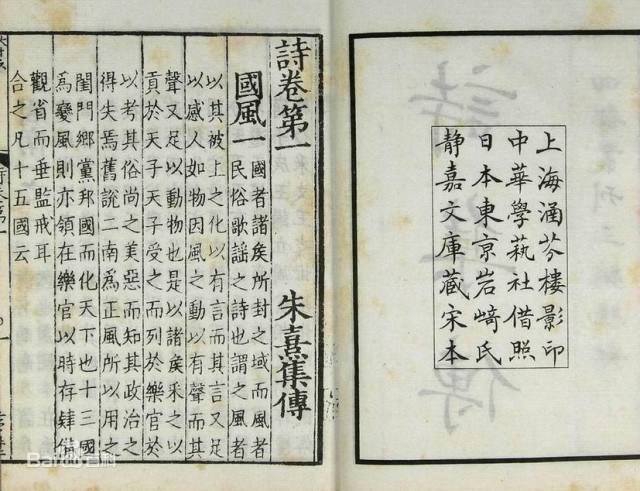 上海涵芬樓影印
中華學蓺社借照
日本東京岩﨑氏
静嘉文庫藏宋本
詩卷第一
朱熹集傳
國風一
國者諸矦所封之域而風者
民俗歌謡之詩也謂之風者
以其被上之化以有言而其言又足
以感人如物因風之動以有聲而其
聲又足以動物也是以諸矦采之以
貢於天子天子受之而列於樂官於
以考其俗尚之美惡而知其政治之
得失焉舊說二南為正風所以用之
閨門鄉黨邦國而化天下也十三國
為變風則亦領在樂官以時存肄備
觀省而垂監戒耳
合之凡十五國云
Baidu百科